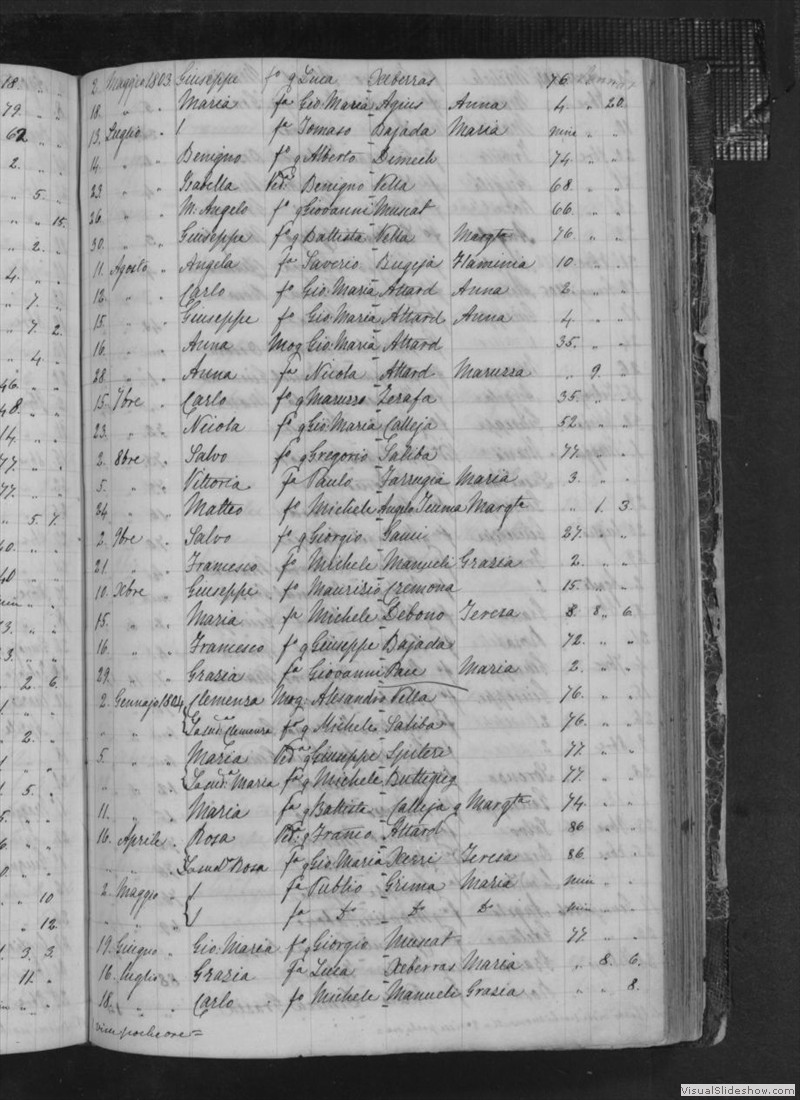 2. Maggio 1803 Giuseppe fo q Luca Xeberras 76
18. " " Maria fa Gio Maria Agius Anna 4 " 20.
13. Luglio " / fa Tomaso Bajada Maria
14. " " Benigno fo q Alberto Dimech 74 " "
23. " " Izabella Veda Benigno Vella 68. " "
26. " " M. Angelo fo q Giovanni Muscat 66. " "
30. " " Giuseppa fa q Battista Vella Margta 76 " "
11. Agosto " Angela fa Saverio Bugeja Flaminia 10. " "
12. " " Carlo fo Gio. Maria Attard Anna 2. " "
15. " " Giuseppe fo Gio. Maria Attard Anna 4. " "
16. " " Anna Mog Gio: Maria Attard 35. " "
28. " " Anna fa Nicola Attard Maruzza " 9. "
15. 7bre " Carlo fo q Maruzzo Zerafa 35. " "
23. " " Nicola fo q Gio Maria Calleja 52. " "
2. 8bre " Salvo fo q Gregorio Saliba 77. " "
5. " " Vittoria fa Paulo Farrugia Maria 3. " "
24. " " Matteo fo Michele Angelo Teuma Margta " 1. 3.
2. 9bre " Salvo fo q Giorgio Gauci 27. " "
21. " " Francesco fo Michele Manueli Grazia 2. " "
10. Xbre " Giuseppe fo Maurizio Cremona 15. " "
15. " " Maria fa Michele Debono Teresa 8. 8 " 6.
16. " " Francesco fo q Giuseppe Bajada 72. " "
29. " " Grazia fa Giovanni Pace Maria 2. " "
2. Gennajo 1804 Clemenza Mog: Alesandro Vella 76. " "
" " " La suda Clemenza fa q Michele Saliba 76. " "
5. " " Maria Veda q Giuseppe Spiteri 77. " "
" La suda Maria fa q Michele Buttigieg 77. " "
11. " " Maria fa q Battista Calleja q Margta 74. " "
16. Aprile " Rosa Veda q Franco Attard 86 " "
" " La suda Rosa fa q Gio: Maria Xerri Teresa 86. " "
2. Maggio " / fa Publio Grima Maria min " "
" " " / fa Do Do Do min " "
19. Giugno " Gio: Maria fo q Giorgio Muscat 77. " "
16. Luglio " Grazia fa Luca Xeberras Maria " 8. 6.
18. " " Carlo fo Michele Manueli Grazia " " 8.
poche ore =
VisualSlideshow.com